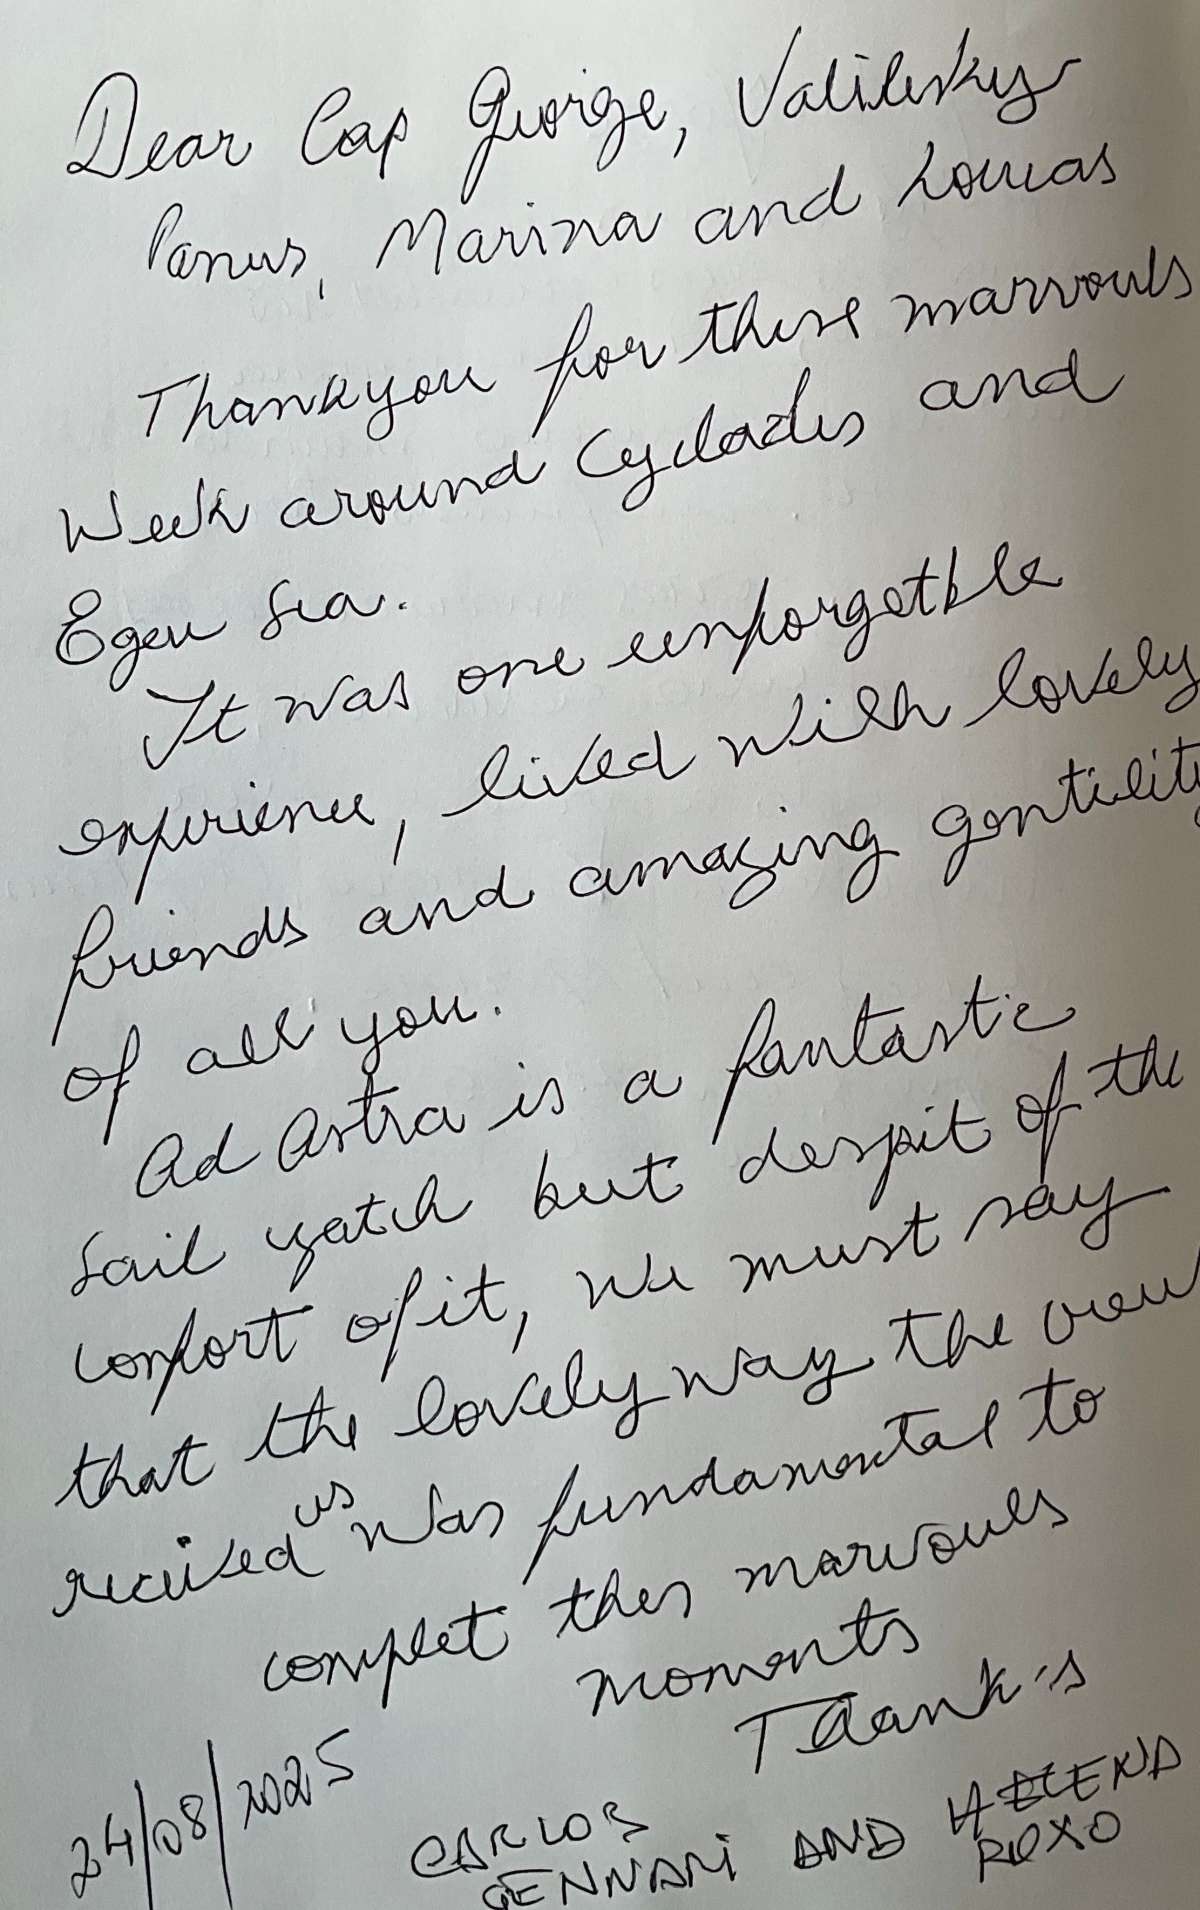 Dear Cap George, Valilisky
Panus, Marina and Loucas
Thankyou for these marvouls
Week around Cyclades and
Egeu Sea.
It was one unforgetble
experience, lived with lovely
friends and amazing gentility
of all you.
Ad Astra is a fantastic
sail yatch but despit of the
confort of it, we must say
that the lovely way the view
recived us was fundamental to
complet thes marvouls
moments
Thank's
24/08/2025
CARLOS
GENNARI AND
ROXO